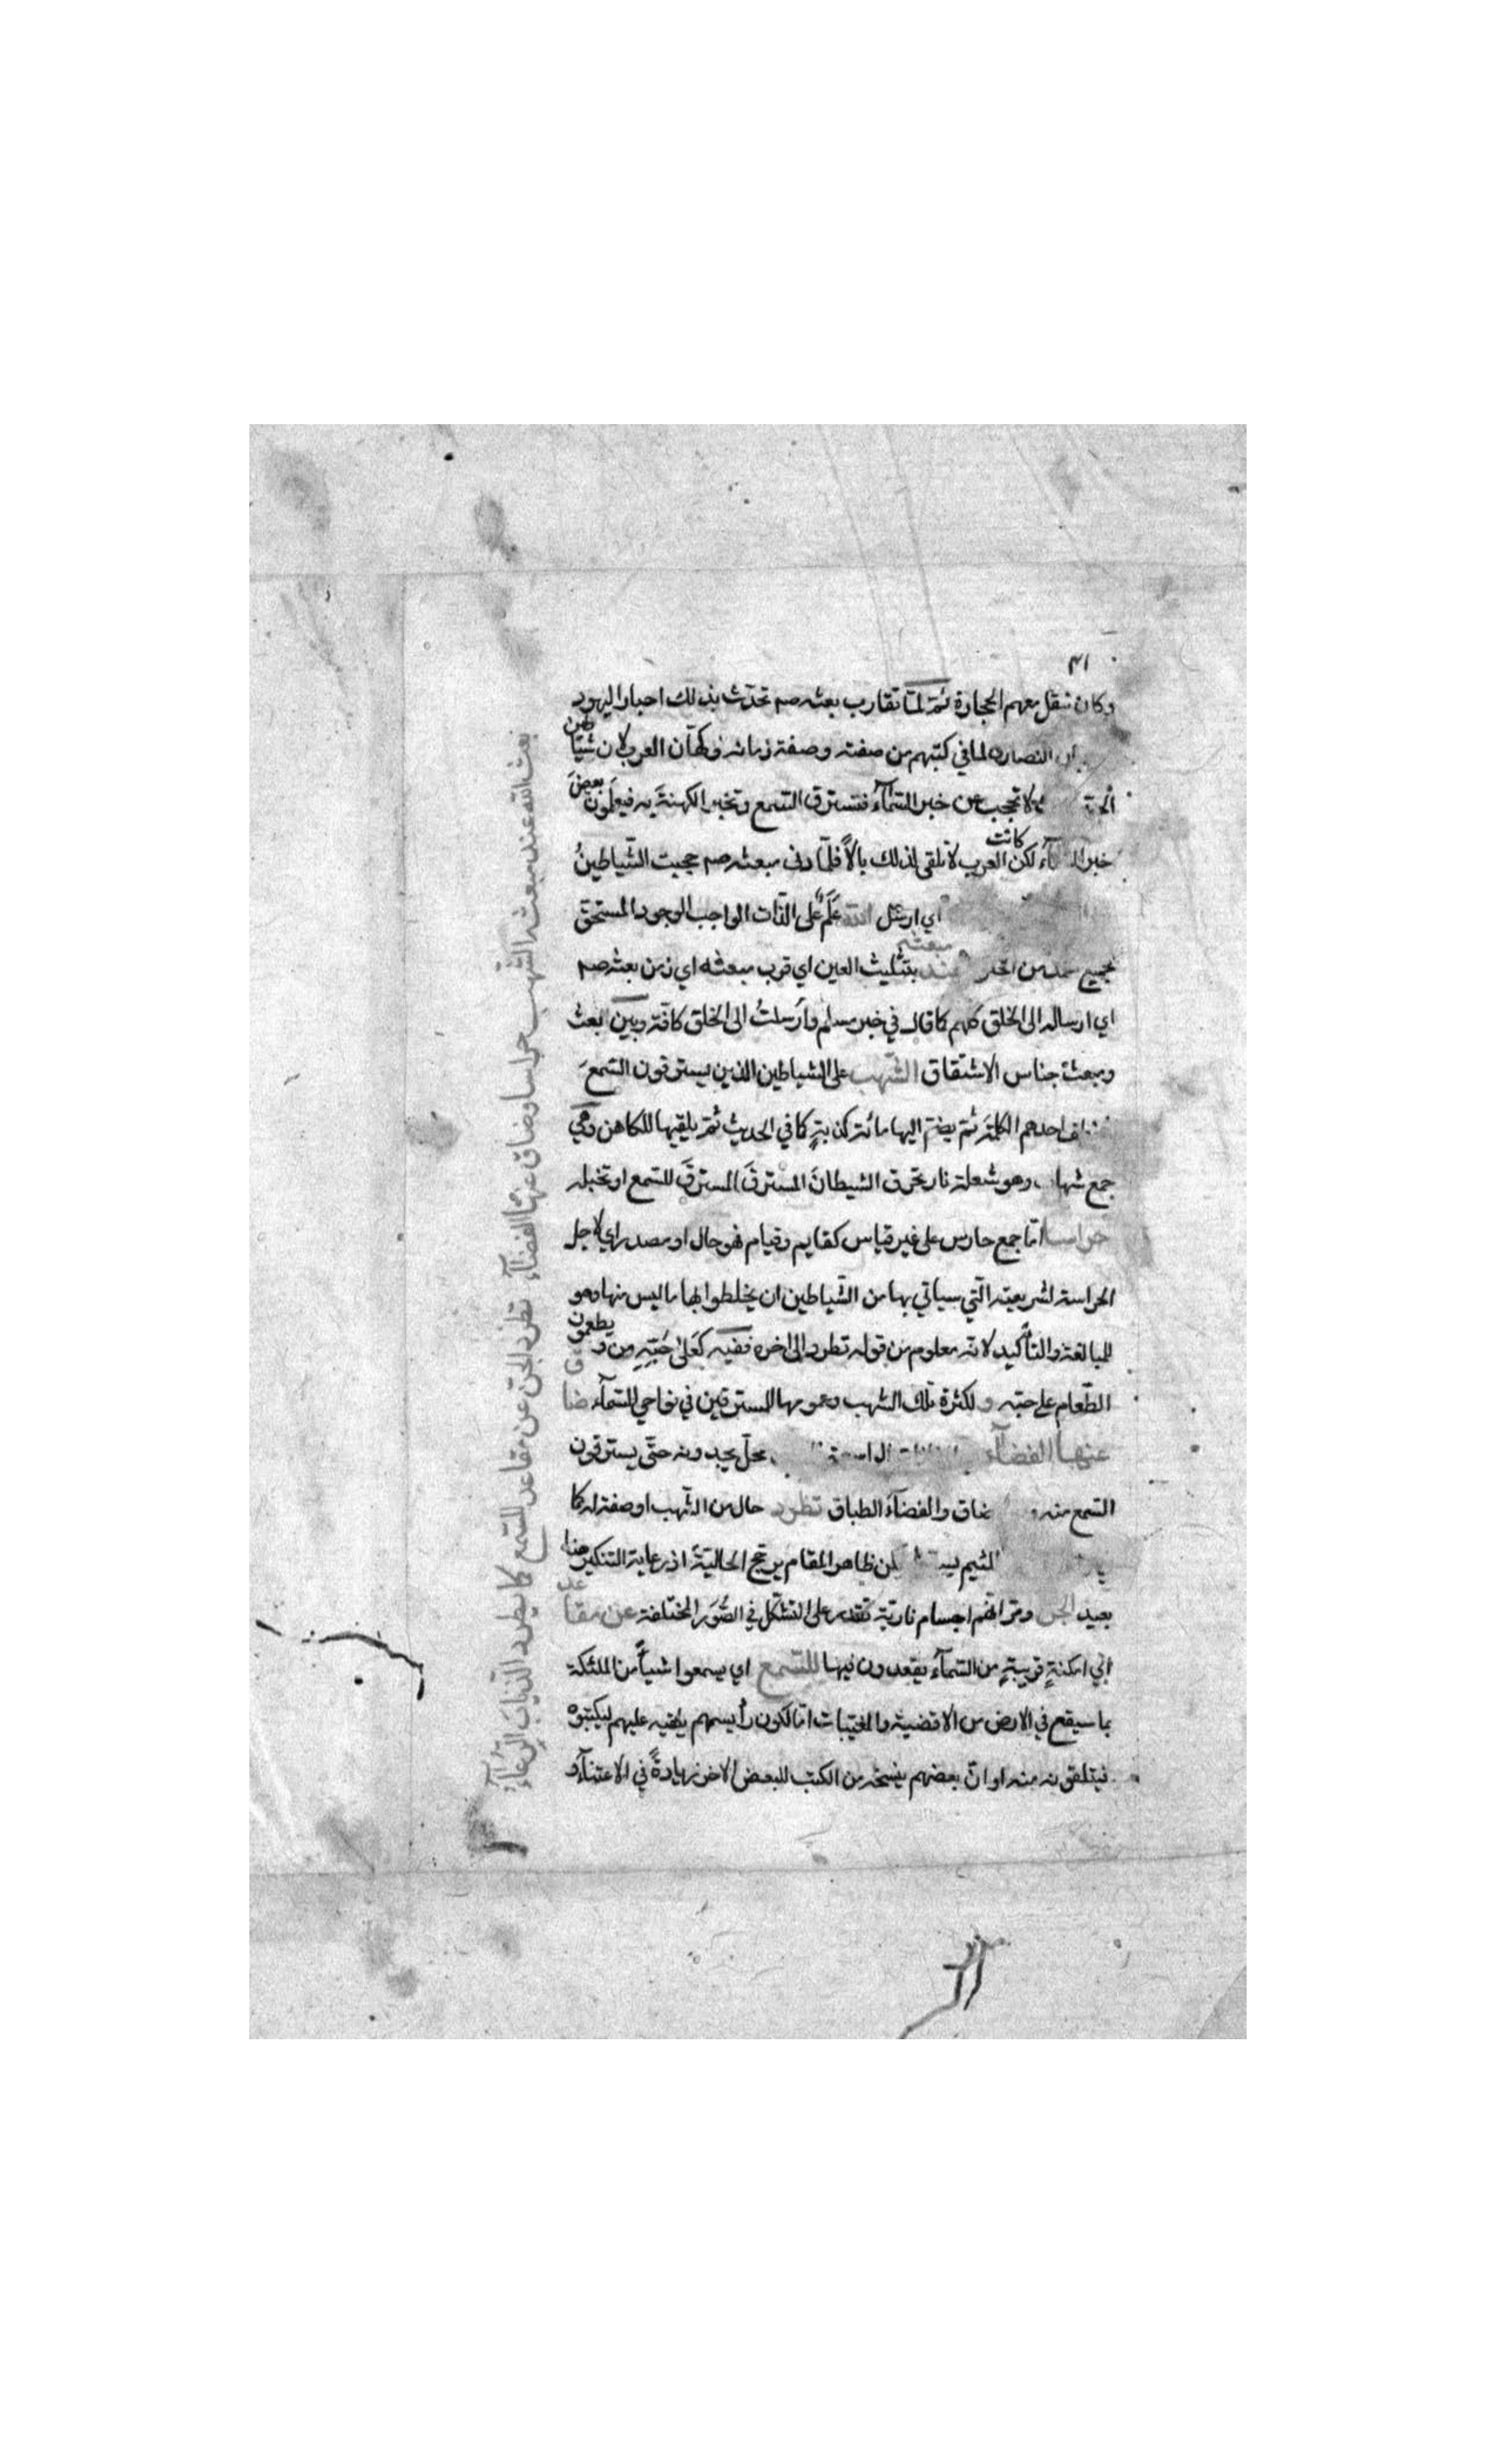 ٤١
وكان ينقل معهم الحجارة ثمّ لمّا تقارب بعثه صم تحدّث بذلك احبار اليهود
النصارى لما في كتبهم من صفته وصفة زمانه وكهّان العرب لان شياطين
الجنّ لا تحجب عن خبر السّمآء فتسترق السّمع وتخبر الكهنة به فيعلمون بعضَ
خبر السمآء لكن كانت العرب لا تلقى لذلك بالًا فلمّا دنى مبعثه صم حجبت الشّياطينُ
اي ارسل الله عَلَمٌ على الذّات الواجب الوجود المستحق
لجميع من عند مبعثه بتثليث العين اي قرب مبعثه اي زمن بعثه صم
اي ارساله الى الخلق كلهم كما قال في خبر مسلم وأرسلتُ الى الخلق كافّة وبين بعث
ومبعث جناس الاشتقاق الشّهب على الشياطين الذين يسترقون السّمعَ
احدهم الكلمة ثم يضمّ اليها مائة كذبةٍ كما في الحديث ثمّ يلقيها للكاهن وهي
جمع شهاب وهو شعلة نار تحرق الشيطانَ المسترقَ المسترقَ للسّمع او تخبله
حراسا امّا جمع حارس على غير قياس كقايم وقيام فهو حال او مصدر اي لاجل
الحراسة لشريعته الّتي سياتي بها من الشّياطين ان يخلطوا بها ما ليس منها وهو
للمبالغة والتأكيد لانّه معلوم من قوله تطرد الى اخره ففيه كَعَلىٰ حُبّهِ من ويطعمون
الطّعام على حبّه و لكثرة تلك الشهب وعمومها للمسترقين في نواحي السّمآء ضاق
عنها الفضآء الواسعة محلّ يجدونه حتّى يسترقون
السّمع منه و ضاق والفضآء الطباق تطرد حال من الشّهب او صفة له كما
لكن ظاهر المقام يرجّح الحاليّة اذ رعاية التنكير هنا
بعيد الجن ومرّ انّهم اجسام ناريّة تقدر على التشكّل في الصُّوَر المختلفة عن مقاعد
اي امكنةٍ قريبةٍ من السّمآء يقعدون فيها للسّمع اي يسمعوا شيأً من الملئكة
بما سيقع في الارض من الاقضية والمغيّبات امّا لكون رأيسهم يلقيه عليهم ليكتبوه
فيتلقونه منه او انّ بعضهم ينسخه من الكتب للبعض الاخر زيادةً في الاعتنآء و
بعث الله عند مبعثه الشّهب حراسا وضاق عنها الفضآء تطرد الجنّ عن مقاعد للسّمع كما يطرد الذّئابَ الرّعآء